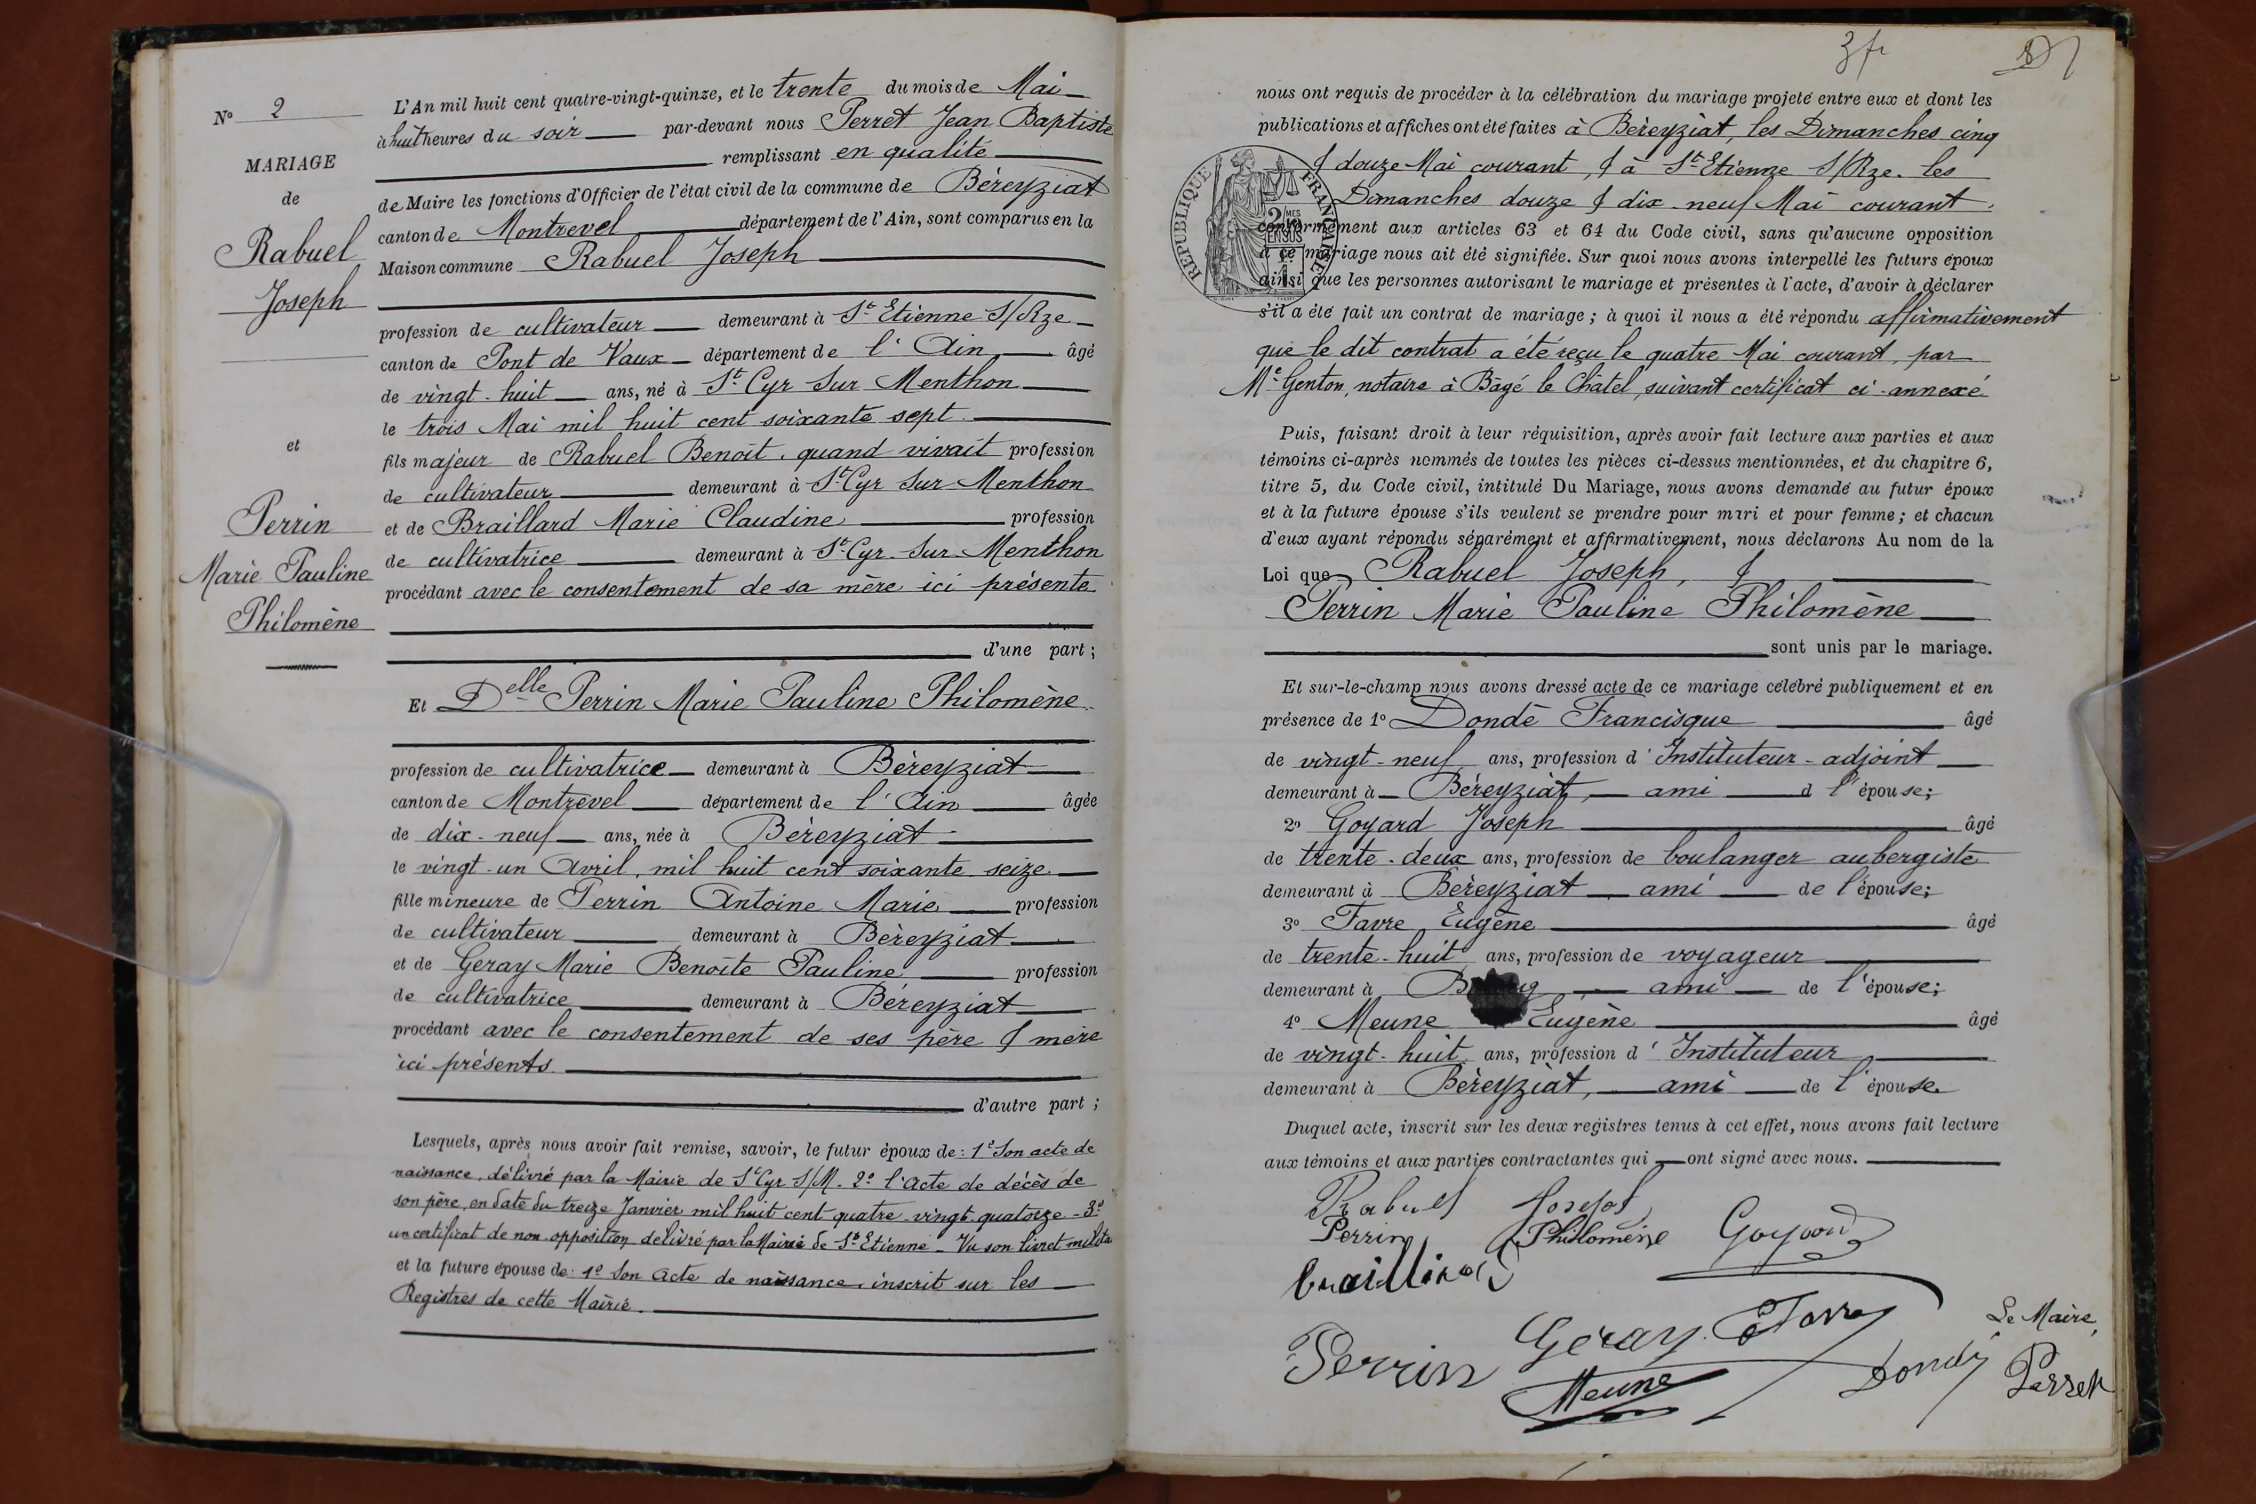 N° 2
MARIAGE
de
Rabuel
Joseph
et
Perrin
Marie Pauline
Philomène
L'An mil huit cent quatre-vingt-quinze, et le trente du mois de Mai
à huit heures du soir par-devant nous Perret Jean Baptiste
remplissant en qualité
de Maire les fonctions d'Officier de l'état civil de la commune de Béreyziat
canton de Montrevel département de l'Ain, sont comparus en la
Maison commune Rabuel Joseph
profession de cultivateur demeurant à St Etienne S/Rze
canton de Pont de Vaux département de l'Ain âgé
de vingt-huit ans, né à St Cyr sur Menthon
le trois Mai mil huit cent soixante sept
fils majeur de Rabuel Benoît, quand vivait profession
de cultivateur demeurant à St Cyr sur Menthon
et de Braillard Marie Claudine profession
de cultivatrice demeurant à St Cyr sur Menthon
procédant avec le consentement de sa mère ici présente
d'une part ;
Et Delle Perrin Marie Pauline Philomène
profession de cultivatrice demeurant à Béreyziat
canton de Montrevel département de l'Ain âgée
de dix-neuf ans, née à Béreyziat
le vingt-un Avril, mil huit cent soixante seize
fille mineure de Perrin Antoine Marie profession
de cultivateur demeurant à Béreyziat
et de Geray Marie Benoîte Pauline profession
de cultivatrice demeurant à Béreyziat
procédant avec le consentement de ses père & mère
ici présents
d'autre part ;
Lesquels, après nous avoir fait remise, savoir, le futur époux de : 1° Son acte de
naissance, délivré par la Mairie de St Cyr S/M. 2° l'acte de décès de
son père, en date du treize Janvier mil huit cent quatre-vingt-quatorze - 3°
un certificat de non-opposition délivré par la Mairie de St Etienne - Vu son livret milita
et la future épouse de : 1° Son Acte de naissance, inscrit sur les
Registres de cette Mairie.
3 fr
nous ont requis de procéder à la célébration du mariage projeté entre eux et dont les
publications et affiches ont été faites à Béreyziat, les Dimanches cinq
& douze Mai courant, & à St Etienne S/Rze. les
Dimanches douze & dix-neuf Mai courant.
RÉPUBLIQUE FRANÇAISE
conformément aux articles 63 et 64 du Code civil, sans qu'aucune opposition
à ce mariage nous ait été signifiée. Sur quoi nous avons interpellé les futurs époux
ainsi que les personnes autorisant le mariage et présentes à l'acte, d'avoir à déclarer
s'il a été fait un contrat de mariage ; à quoi il nous a été répondu affirmativement
que le dit contrat a été reçu le quatre Mai courant, par
Me Genton, notaire à Bâgé le Châtel, suivant certificat ci-annexé
Puis, faisant droit à leur réquisition, après avoir fait lecture aux parties et aux
témoins ci-après nommés de toutes les pièces ci-dessus mentionnées, et du chapitre 6,
titre 5, du Code civil, intitulé Du Mariage, nous avons demandé au futur époux
et à la future épouse s'ils veulent se prendre pour mari et pour femme ; et chacun
d'eux ayant répondu séparément et affirmativement, nous déclarons Au nom de la
Loi que Rabuel Joseph, &
Perrin Marie Pauline Philomène
sont unis par le mariage.
Et sur-le-champ nous avons dressé acte de ce mariage célébré publiquement et en
présence de 1° Dondé Francisque âgé
de vingt-neuf ans, profession d'Instituteur-adjoint
demeurant à Béreyziat, ami d l'épouse ;
2° Goyard Joseph âgé
de trente-deux ans, profession de boulanger aubergiste
demeurant à Béreyziat ami de l'épouse ;
3° Favre Eugène âgé
de trente-huit ans, profession de voyageur
demeurant à ami de l'épouse ;
4° Meune Eugène âgé
de vingt-huit ans, profession d'Instituteur
demeurant à Béreyziat, ami de l'épouse.
Duquel acte, inscrit sur les deux registres tenus à cet effet, nous avons fait lecture
aux témoins et aux parties contractantes qui ont signé avec nous.
Rabuel Joseph
Perrin Philomène Goyard
braillard
Perrin Géray E Favre
Meune Dondé
Le Maire,
Perret